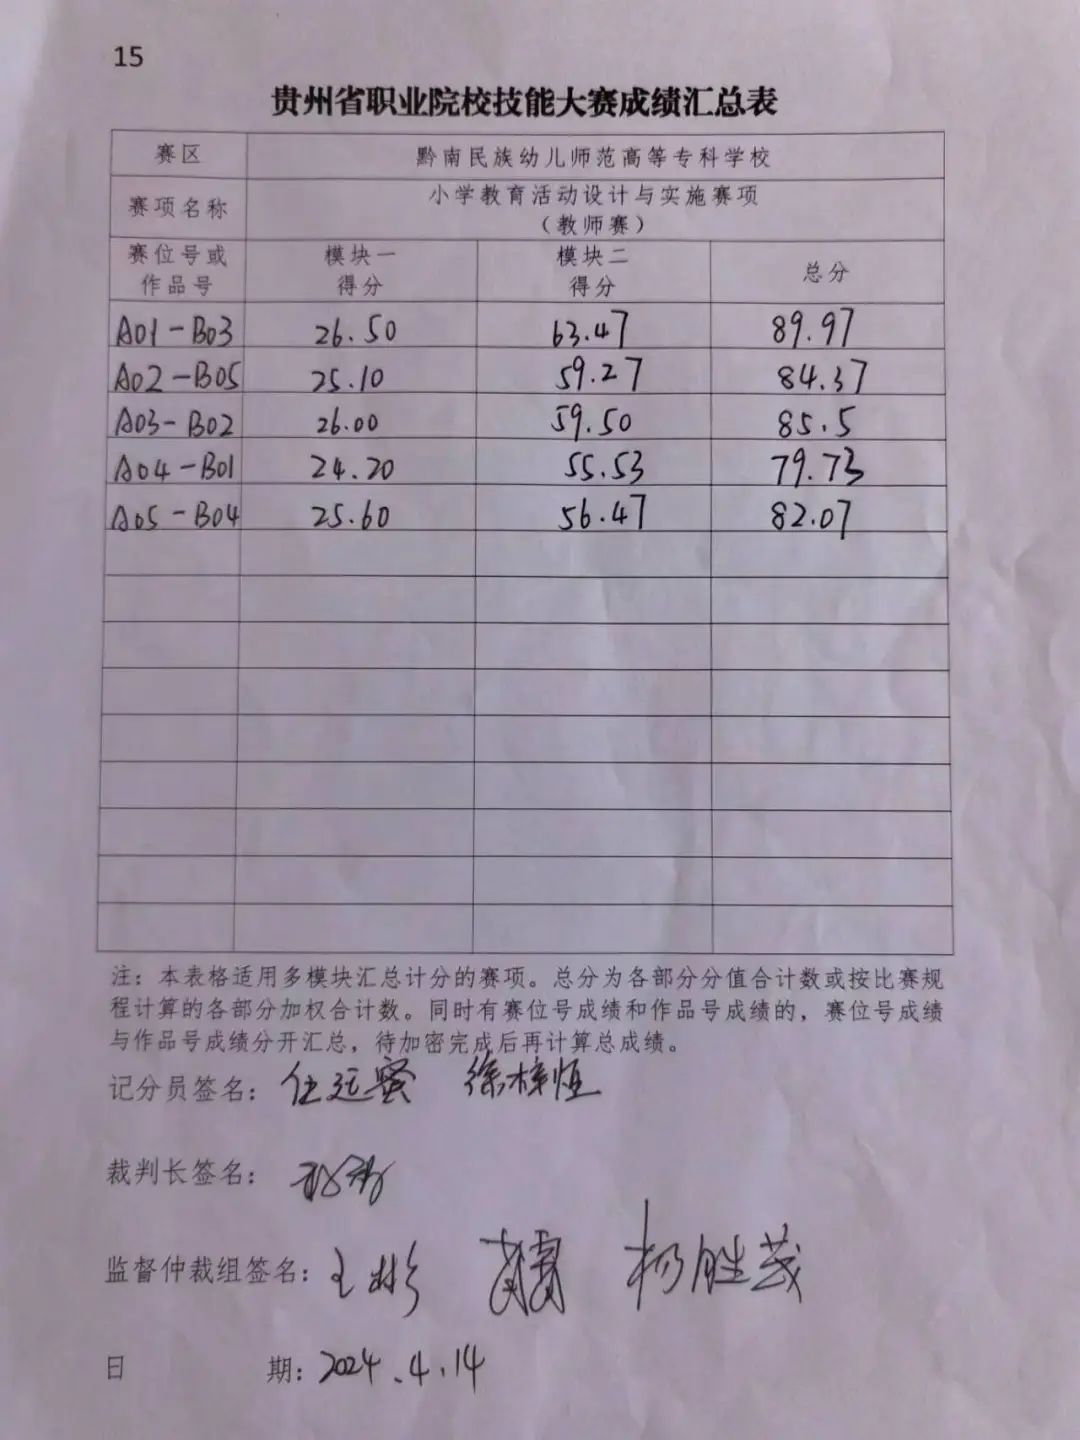 15
贵州省职业院校技能大赛成绩汇总表
赛区 黔南民族幼儿师范高等专科学校
赛项名称 小学教育活动设计与实施赛项
（教师赛）
赛位号或 模块一 模块二 总分
作品号 得分 得分
A01-B03 26.50 63.47 89.97
A02-B05 25.10 59.27 84.37
A03-B02 26.00 59.50 85.5
A04-B01 24.20 55.53 79.73
A05-B04 25.60 56.47 82.07
注：本表格适用多模块汇总计分的赛项。总分为各部分分值合计数或按比赛规
程计算的各部分加权合计数。同时有赛位号成绩和作品号成绩的，赛位号成绩
与作品号成绩分开汇总，待加密完成后再计算总成绩。
记分员签名：任远鳌 徐梓恒
裁判长签名：
监督仲裁组签名：王彬 杨胜茂
日 期：2024.4.14